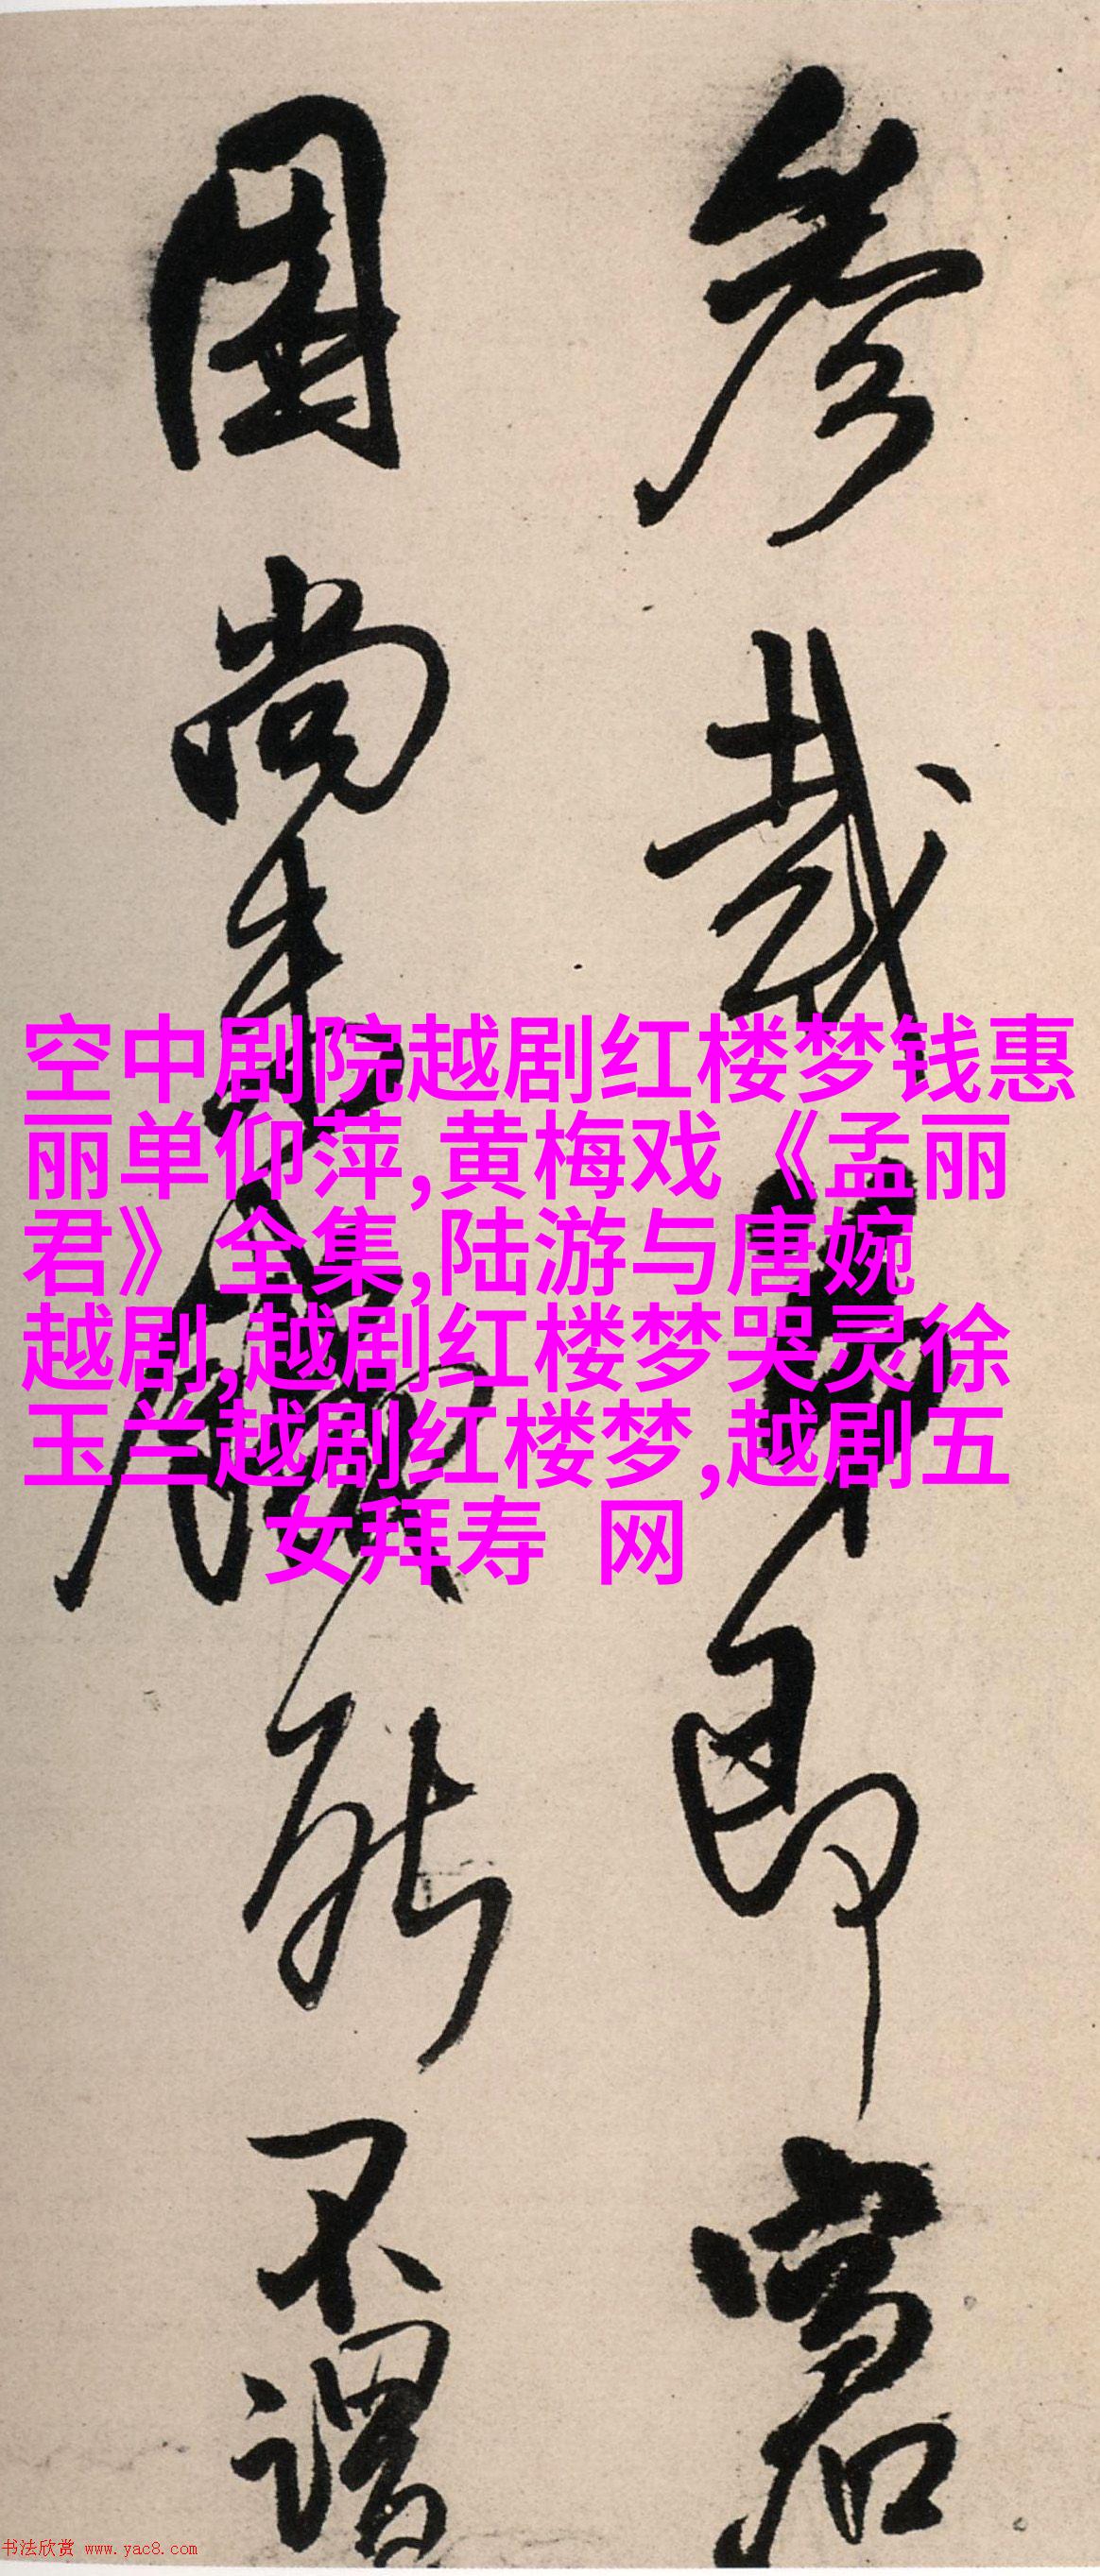 參哉
即窘
困尚未
能不謂
空中剧院越剧红楼梦钱惠
丽单仰萍,黄梅戏《孟丽
君》全集,陆游与唐婉
越剧,越剧红楼梦哭灵徐
玉兰越剧红楼梦,越剧五
女拜寿 网
书法欣赏 www.yac8.com